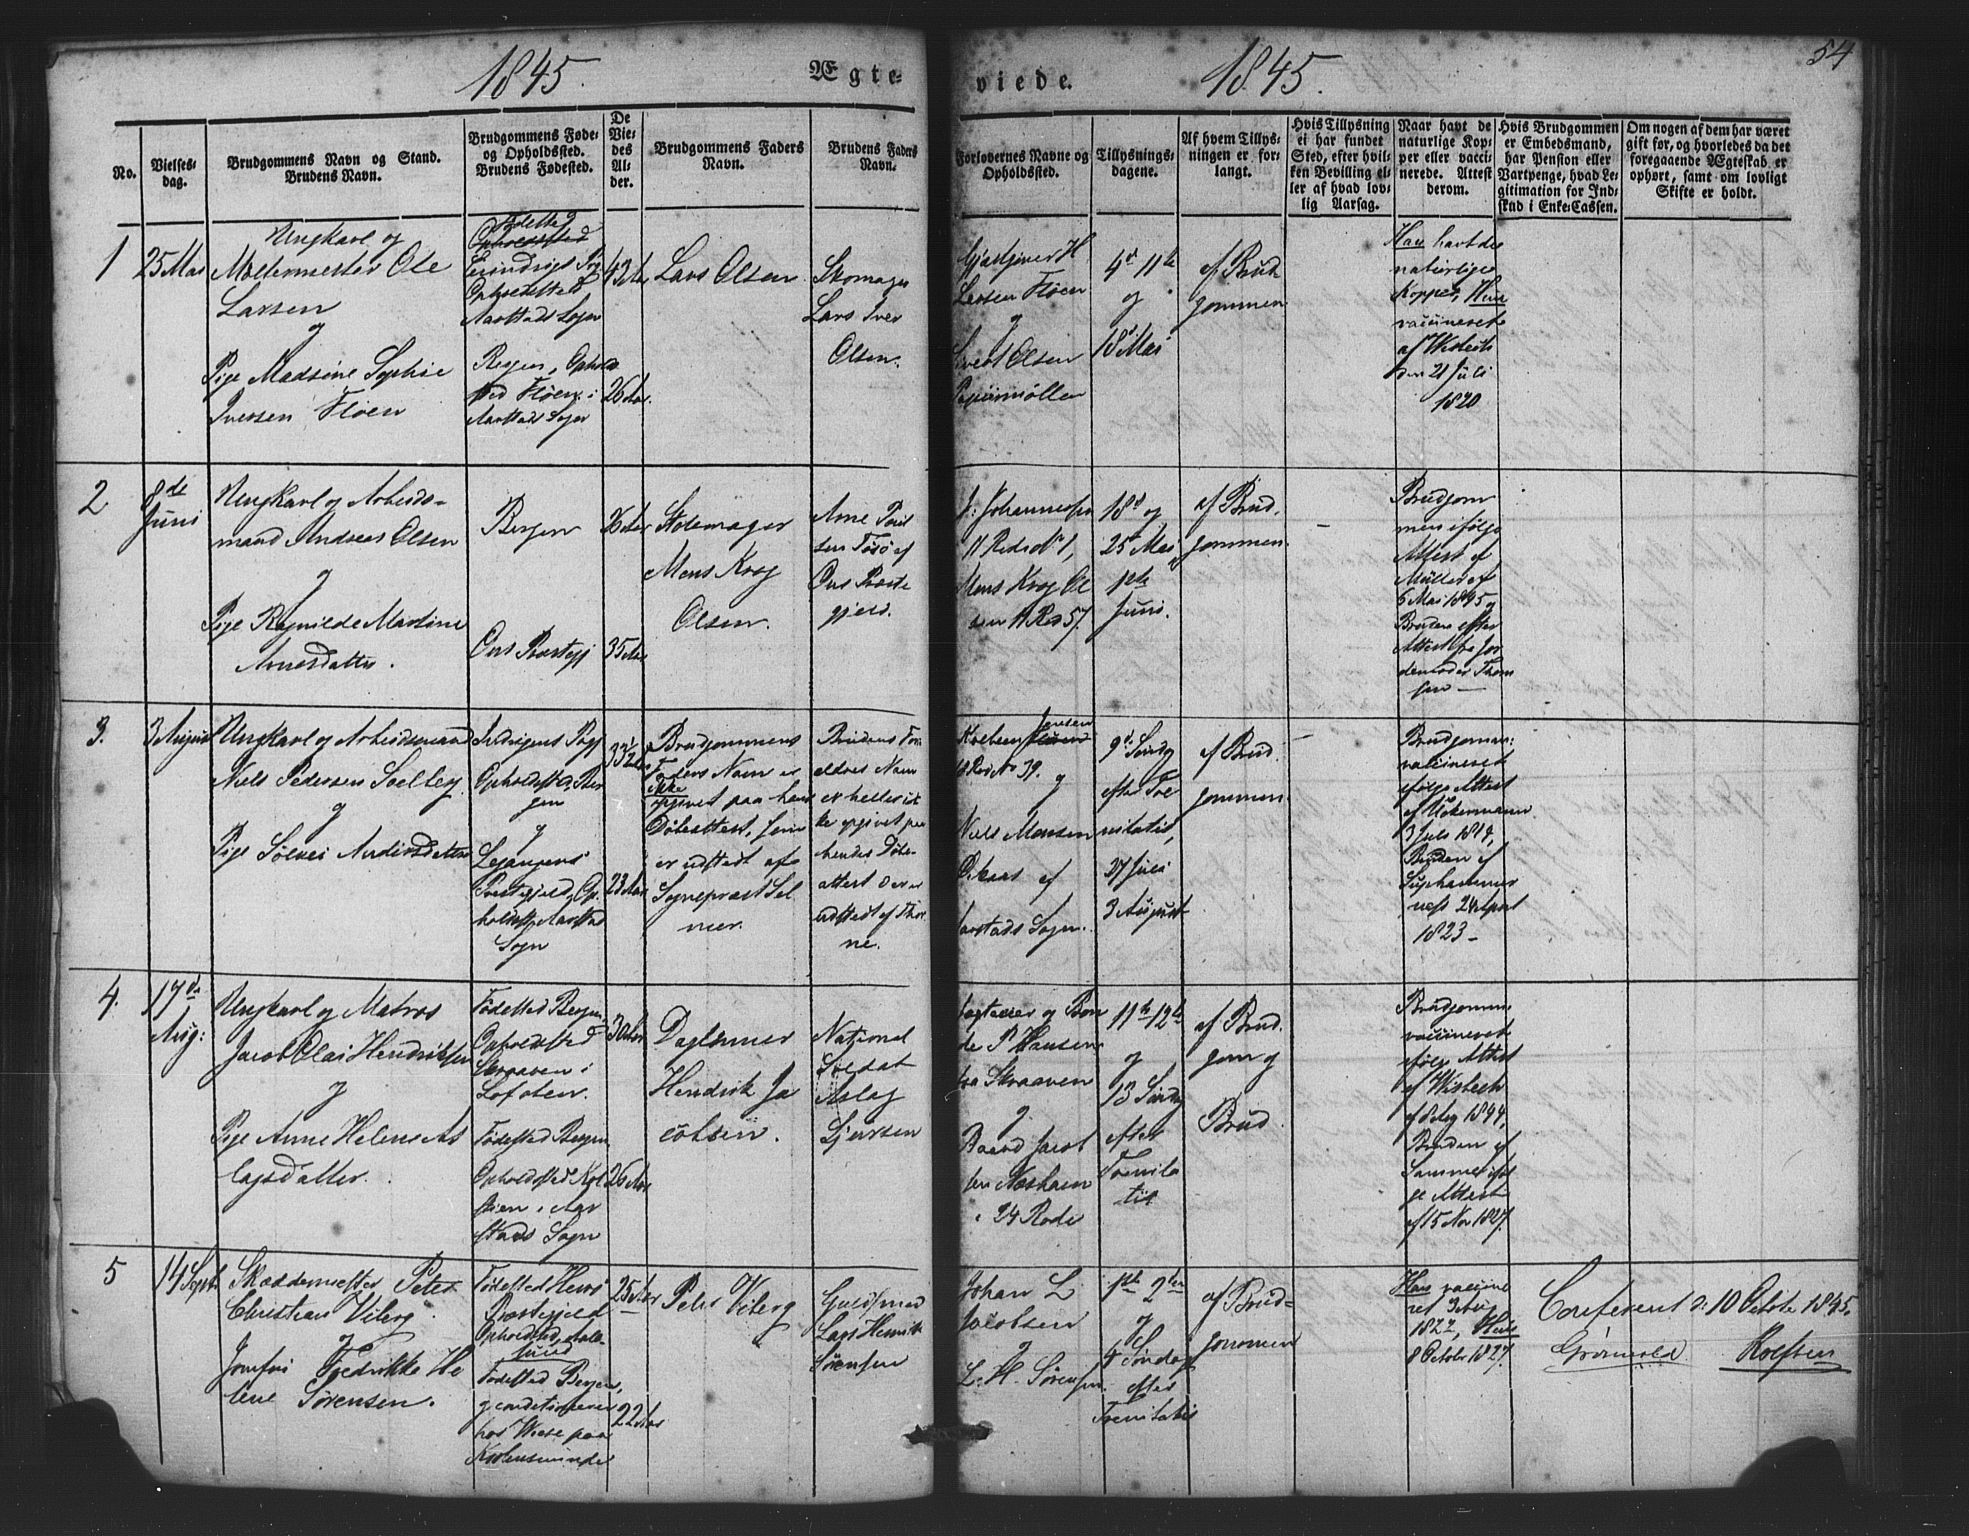 1845. Ægte-
viede. 1845. 54
No.
Vielses-
dag.
Brudgommens Navn og Stand.
Brudens Navn.
Brudgommens Føde-
og Opholdssted.
Brudens Fødested.
De
Vie-
des
Al-
der.
Brudgommens Faders
Navn.
Brudens Faders
Navn.
Forlovernes Navne og
Opholdssted.
Tillysnings-
dagene.
Af hvem Tillys-
ningen er for-
langt.
Hvis Tillysning
ei har fundet
Sted, efter hvil-
ken Bevilling el-
ler af hvad lov-
lig Aarsag.
Naar havt de
naturlige Kop-
per eller vacci-
nerede. Attest
derom.
Hvis Brudgommen
er Embedsmand,
har Pension eller
Vartpenge, hvad Le-
gitimation for Ind-
skud i Enke-Cassen.
Om nogen af dem har været
gift før, og hvorledes da det
foregaaende Ægteskab er
ophørt, samt om lovligt
Skifte er holdt.
1
25 Mai
Ungkarl og
Møllermester Ole
Larsen
og
Pige Madsine Sophie
Iversen Fløen
Fødested
Opholdssted
Opholdssted
Aarstads Sogn
Bergen, Opholds
sted Fløen i
Aarstads Sogn
42 Aar
26 Aar.
Lars Olsen
Skomager
Lars Iver
Olsen.
Gjæstgiver H
Larsen Fløen
og
Sivert Olsen
Papiirmøllen
4de 11te
og
18de Mai
af Brud
gommen
Han havt de
naturlige
Kopper, Hun
vaccineret
af Wisbech
den 21 Juli
1820
2
8de
Juni
Ungkarl og Arbeids-
mand Andreas Olsen
og
Pige Ragnilde Martine
Arnesdatter.
Bergen
Ous Præstegj
26 Aar
35 Aar
Stolemager
Mons Krog
Olsen.
Arne Poul
sen Tosø af
Ous Præste
gjeld.
J: Johannesen
11 Rode No 1,
Mons Krog Ol
sen 11 Rod 57.
18d og
25 Mai
1ste
Juni.
af Brud.
gommen.
Brudgom
men ifølge
Attest af
Müller af
6 Mai 1845 og
Bruden efter
Attest fra Jor
demoder Thom
sen —
3.
3 August
Ungkarl og Arbeidsmand
Niels Pedersen Soelberg
og
Pige Sølvei Andersdatter
Indvigens Pgj
Opholdsted, Ber
gen
og
Leganger
Præstegjeld, Op
holdst, Aarstad
Sogn
33 1/2
23 Aar
Brudgommens
Faders Navn er
ikke
opgivet paa hans
Døbeattest, som
er udstædt af
Sognepræst Sel
mer.
Brudens For
ældres Navn
er heller ik
ke opgivet paa
hendes Døbe
attest der er
udstedt af Thor
ne.
Jensen
4 Rod No 39. og
Niels Monsen
af
Aarstads Sogn.
9de Søndag
efter Tre
nitatis,
27 Juli
3 August
af Brud
gommen.
Brudgommen:
vaccineret
ifølge Attest
af Ükermann
3 Juli 1814,
Bruden af
Suphammer
24 April
1823 –
4.
17de
Aug:
Ungkarl og Matros
Jacob Olai Hendriksen
og
Pige Anne Helene As
lagsdatter.
Fødested Bergen,
Opholdsted
Skraaven i
Lofoten.
Fødested Bergen
Opholdsted Kal
i Aar
stads Sogn
30 Aar
26 Aar
Daglønner
Hendrik Ja
cobsen.
National
Soldat
Aslag
Sjursen
og Bon
de P Hansen
fra Skraaven
og
Baard Jacob
sen Næsheim
i 24 Rode
11te 12te
og
13 Søndag
efter
Trenita
tis
af Brud.
gom og
Brud.
Brudgommen
vaccineret
ifølge Attest
af Wisbech
af 8 Aug 1844,
Bruden af
Samme iføl
ge Attest
af 15 Nov 1827.
5
14 Sept
Skræddermester Peter
Christian Viberg.
og
Jomfru Fredrikke He
lene Sørensen.
Fødested Herrø
Præstegjeld
Opholdsted, Aale
sund
Fødested Bergen,
og conditionerer
hos Wiese paa
Kalvensminde
25 Aar
22 Aar
Peter Viberg
Guldsmed
Lars Henrik
Sørensen
Johan L
Jacobsen
og
L. H. Sørensen.
1ste 2den
og
4 Søndag
efter
Trenitatis
af Brud-
gommen
Han vaccine
ret 3 Aug
1822, Hun
8 October 1827.
Confereret d: 10 Octobr 1845.
Grønvold Rolfsen